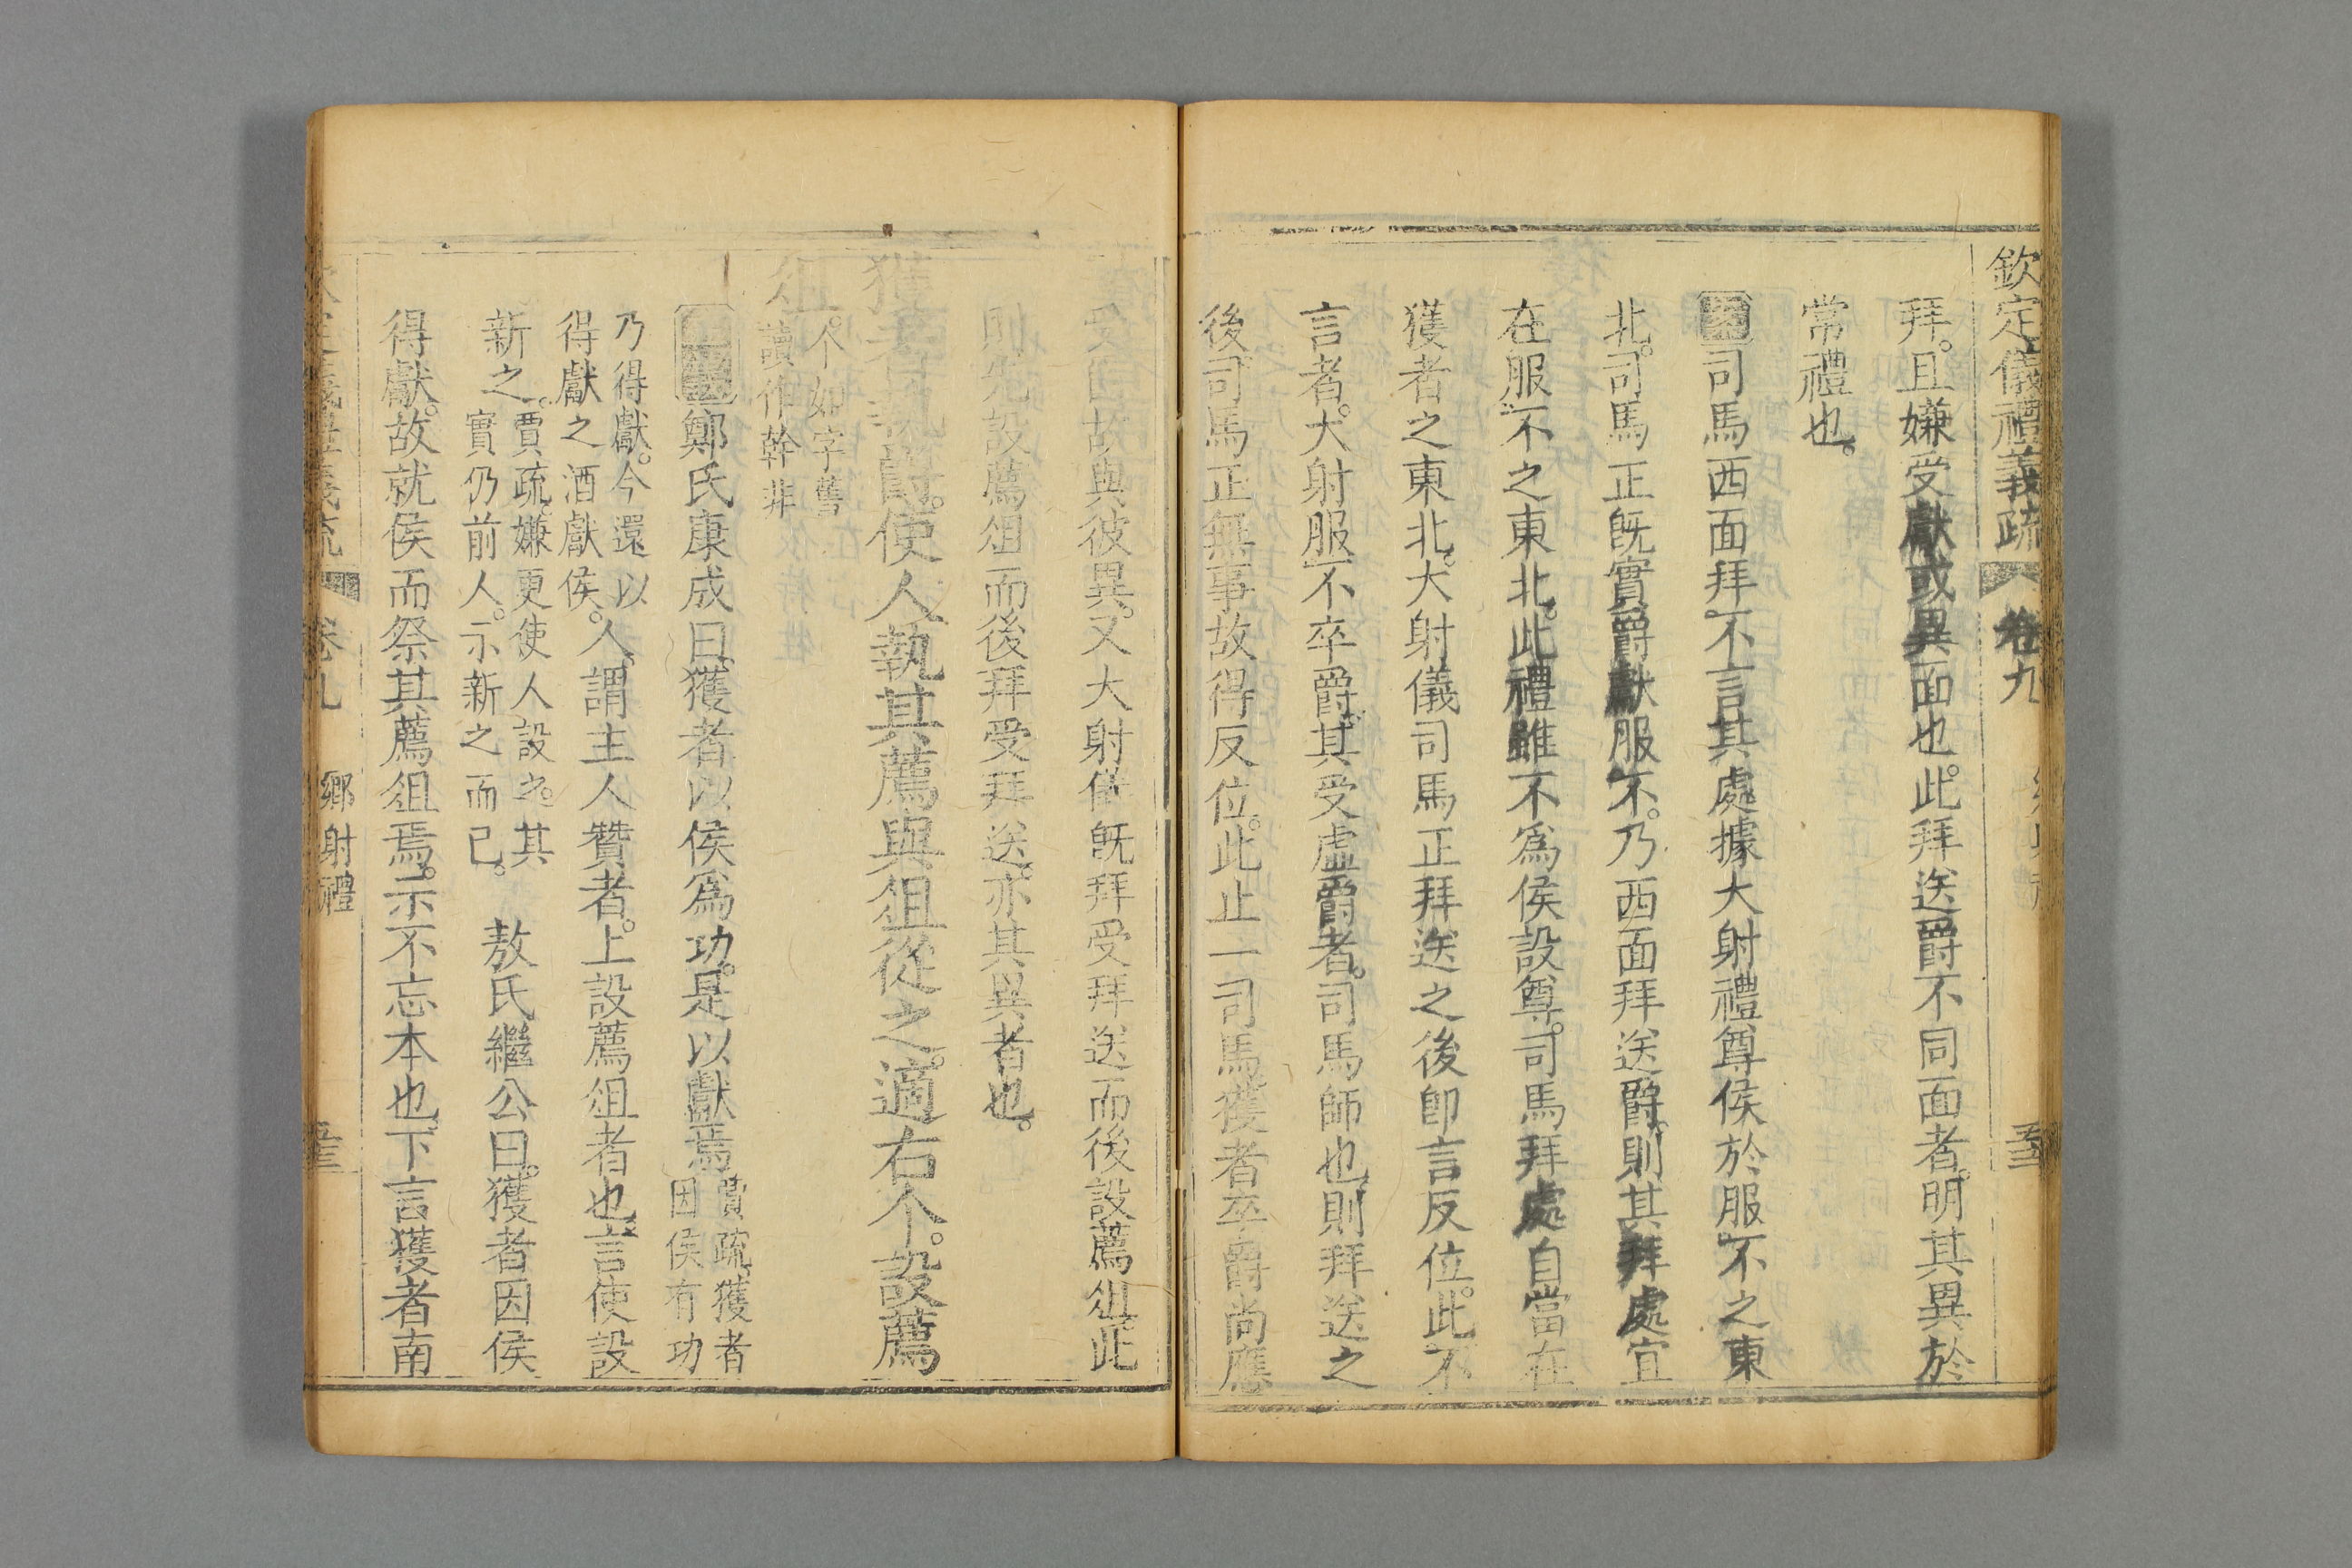 欽定儀禮義疏 卷九
拜。且嫌受獻或異面也。此拜送爵不同面者。明其異於
常禮也。
案司馬西面拜。不言其處據大射禮尊侯於服不之東
北。司馬正既實爵獻服不。乃西面拜送爵。則其拜處宜
在服不之東北。此禮雖不爲侯設尊。司馬拜處自當在
獲者之東北。大射儀司馬正拜送之後卽言反位。此不
言者。大射服不卒爵。其受虛爵者。司馬師也。則拜送之
後。司馬正無事故得反位。此止一司馬獲者卒爵尚應
受爵故與彼異。又大射儀既拜受拜送而後設薦俎。此
則先設薦俎而後拜受拜送。亦其異者也。
獲者執爵。使人執其薦與俎從之。適右个。設薦
俎。个如字舊
讀作幹非
鄭氏康成曰。獲者以侯爲功。是以獻焉賈疏。獲者
因侯有功
乃得獻。今還以
得獻之酒獻侯。人。謂主人贊者。上設薦俎者也。言使設
新之。賈疏。嫌更使人設之。其
實仍前人。示新之而已。 敖氏繼公曰。獲者因侯
得獻。故就侯而祭其薦俎焉。示不忘本也。下言獲者南
卷九 鄉射禮